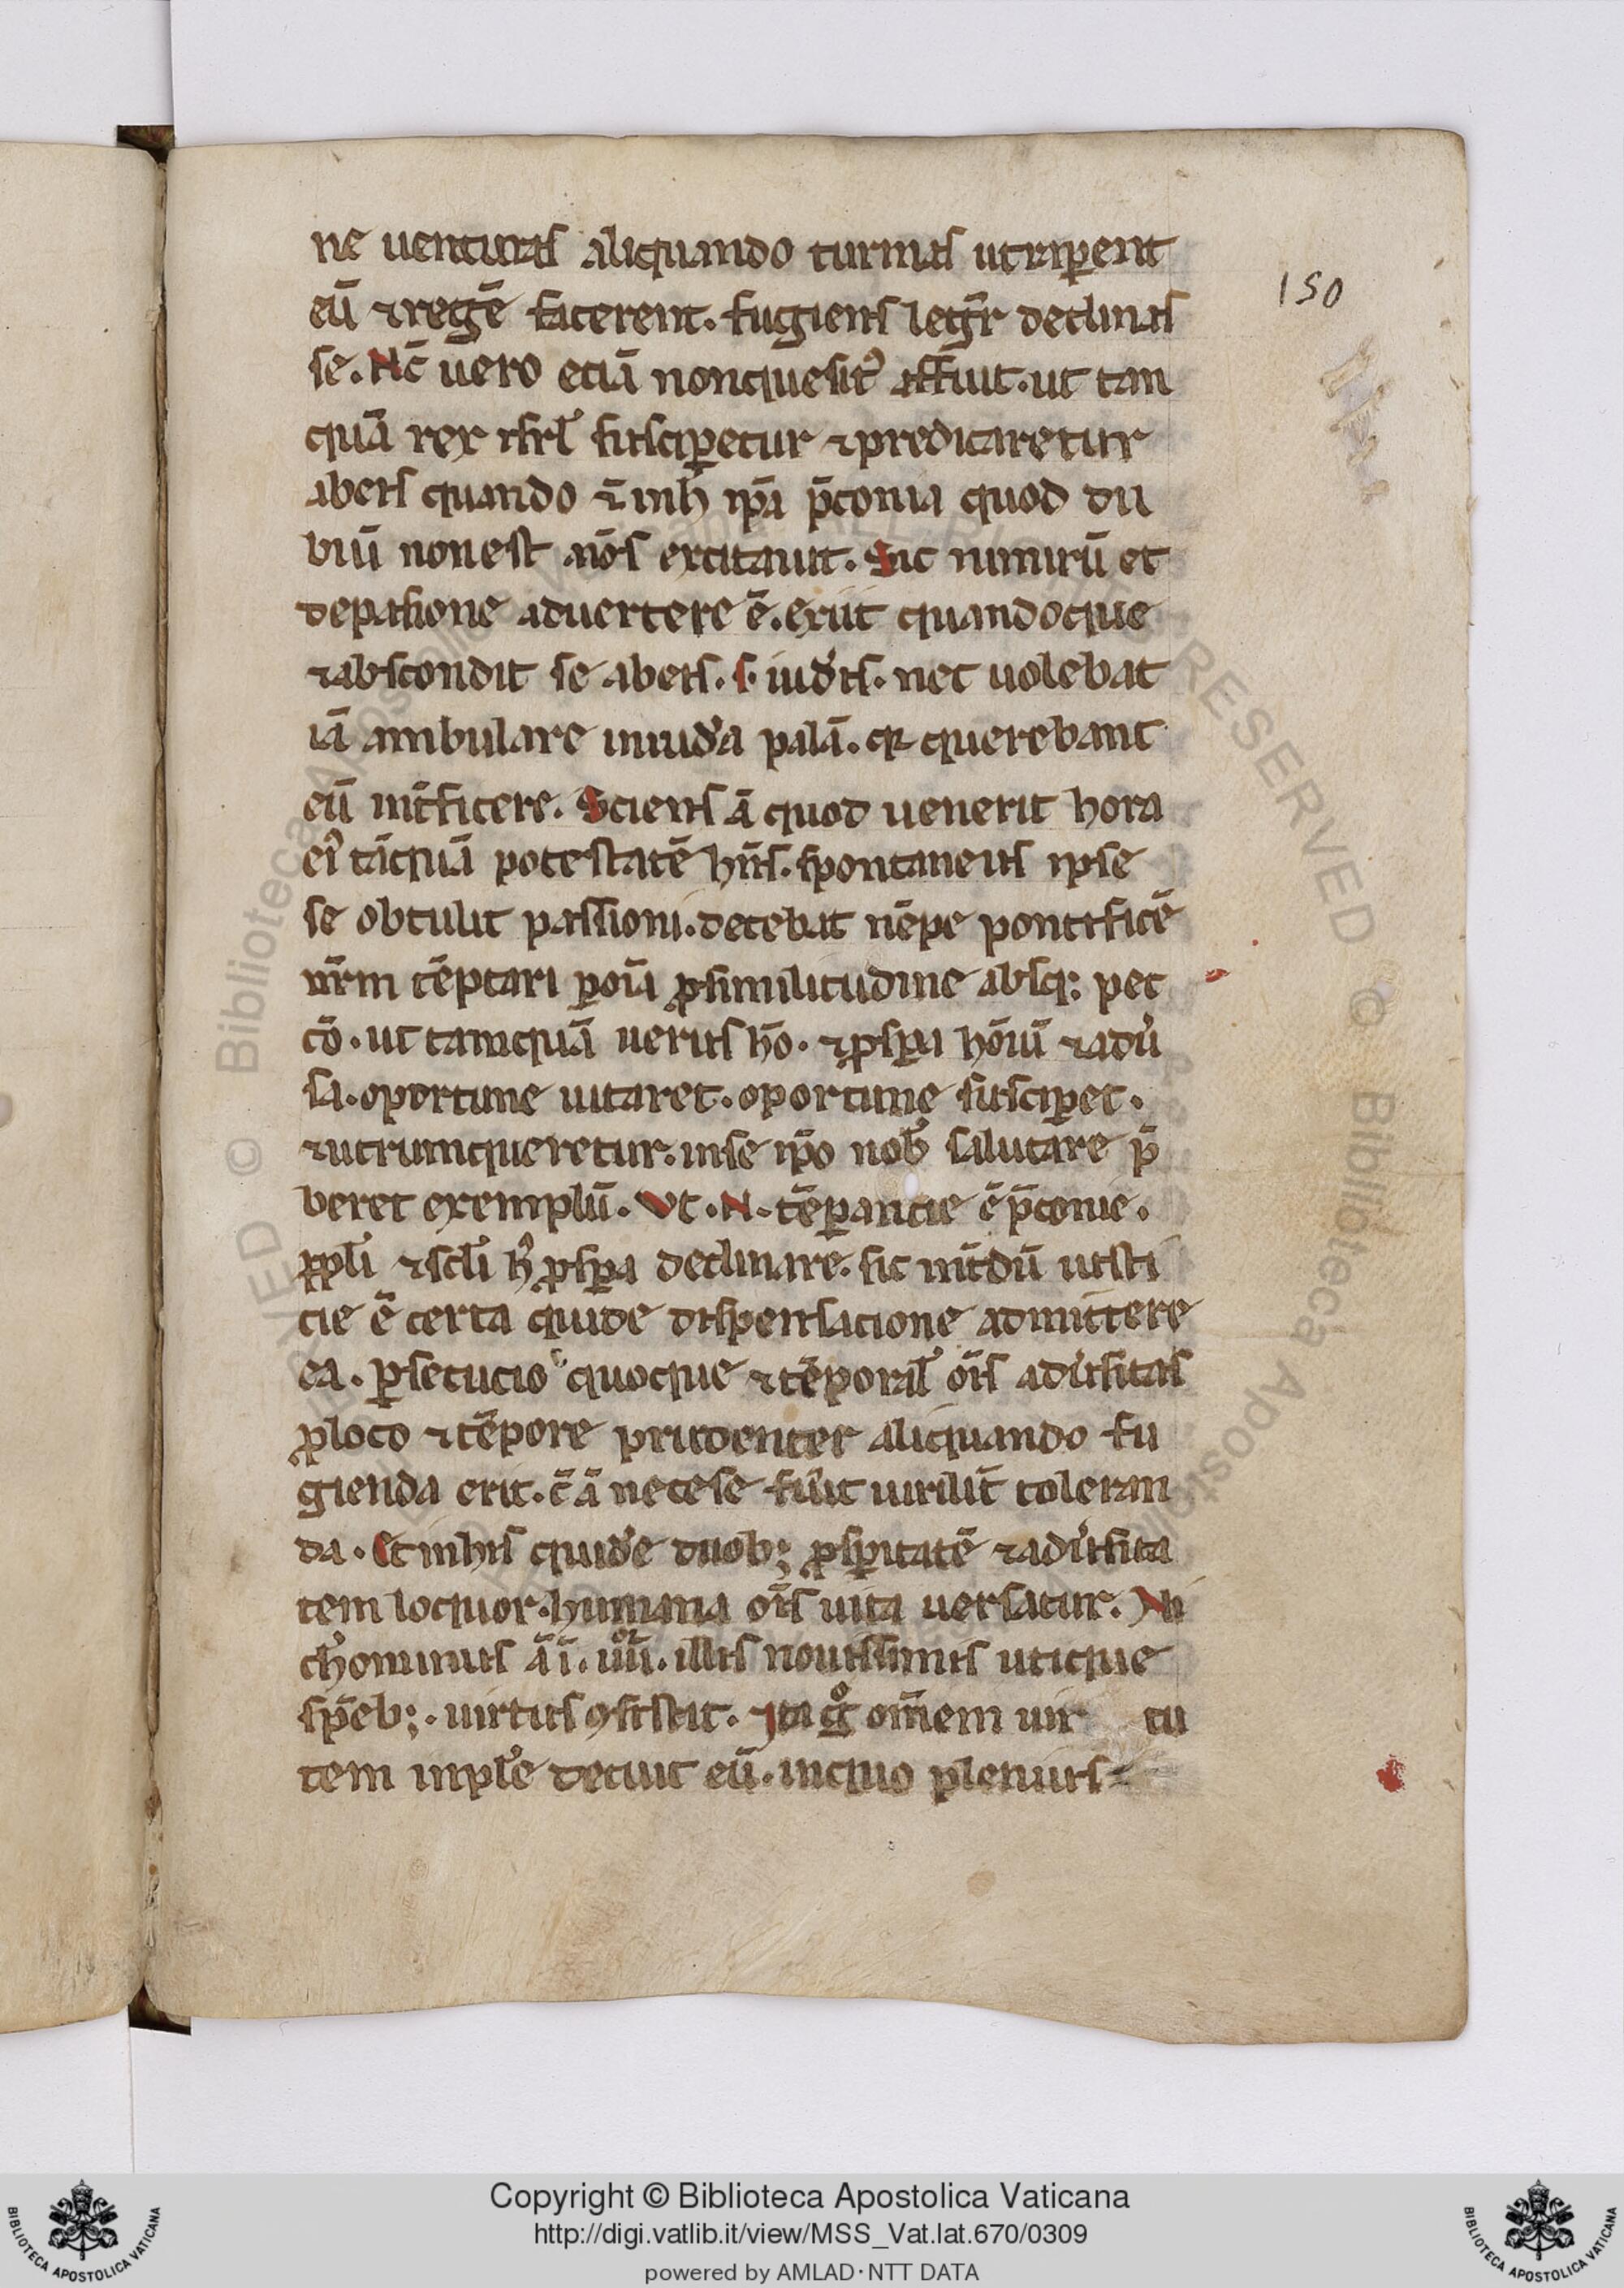 ne uenturas aliquando turmas ut raperent
eū ⁊ regē facerent. fugiens legr̄ declinas
se. Nc̄ uero eciā non quesit᷒ affuit. ut tan
quā rex isrl̓ susciꝑetur ⁊ predicaretur
ab eis quando ⁊ in h̓ ip̄a p̄conia quod du
biū non est aīos excitauit. Sic nimirū et
de passione aduertere ē. exiit quandoque
⁊ abscondit se ab eis. s. iud̓is. nec uolebat
iā ambulare in iud̓a palā. qꝛ querebant
eū int̄ficere. Sciens ā quod uenerit hora
ei᷒ tāquā potestatē hn̄s. spontaneus ipse
se obtulit passioni. decebat nēpe pontificē
nr̄m tēptari ꝑ oīa ꝓ similitudine absq; pec
cō. ut tamquā uerus hō. ⁊ ꝓsꝑa hōiū ⁊ adu̓
sa. oportune uitaret. oportune susciꝑet.
⁊ utrumqueretur. in se ip̄o nob̓ salutare p̄
beret exemplū. Vt. N. tēꝑancie ē p̄conie.
pp̄li ⁊ scl̓i h᷒ ꝓsꝑa declinare. sic int̄dū iusti
cie ē certa quide dispensacione admittere
ea. ꝑsecucio quoque ⁊ tēporal̓ om̄s adu̓sitas
ꝓ loco ⁊ tēpore prudenter aliquando fu
gienda erit. c̄ ā necese fu̓it uirilit̄ toleran
da. Et in his quid̓e duob; ꝓsꝑitatē ⁊ adu̓sita
tem loquor. humana om̄s uita uersatur. Ni
ch̓ominus ā ī. iiii. illis nouissimis utique
spēb;. uirtus ꝯsistit. Ita gͦ om̄em uir tu
tem inpl̓e decuit eū. in quo plenius
150
Copyright © Biblioteca Apostolica Vaticana
http://digi.vatlib.it/view/MSS_Vat.lat.670/0309
powered by AMLAD·NTT DATA